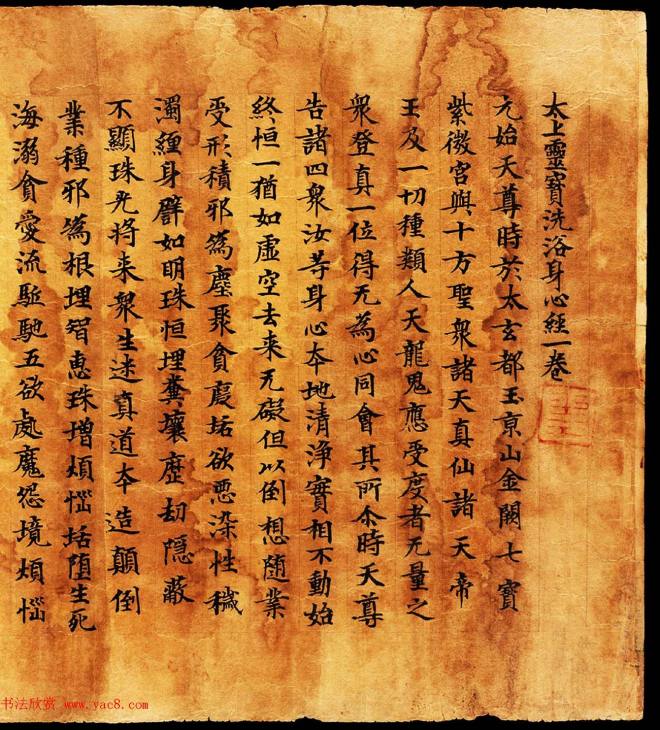 太上靈寶洗浴身心經一卷
元始天尊時於太玄都玉京山金闕七寶
紫微宮與十方聖衆諸天真仙諸天帝
王及一切種類人天龍鬼應受度者无量之
衆登真一位得无為心同會其所尒時天尊
告諸四衆汝等身心本地清淨實相不動始
終恒一猶如虛空去来无礙但以倒想随業
受形積邪為塵聚貪為垢欲惡染性穢
濁纏身譬如明珠恒埋糞壤歷劫隱蔽
不顯珠光将来衆生迷真道本造顛倒
業種邪為根埋智惠珠增煩惱垢堕生死
海溺貪愛流駈馳五欲處魔怨境煩惱
书法欣赏 www.yac8.com